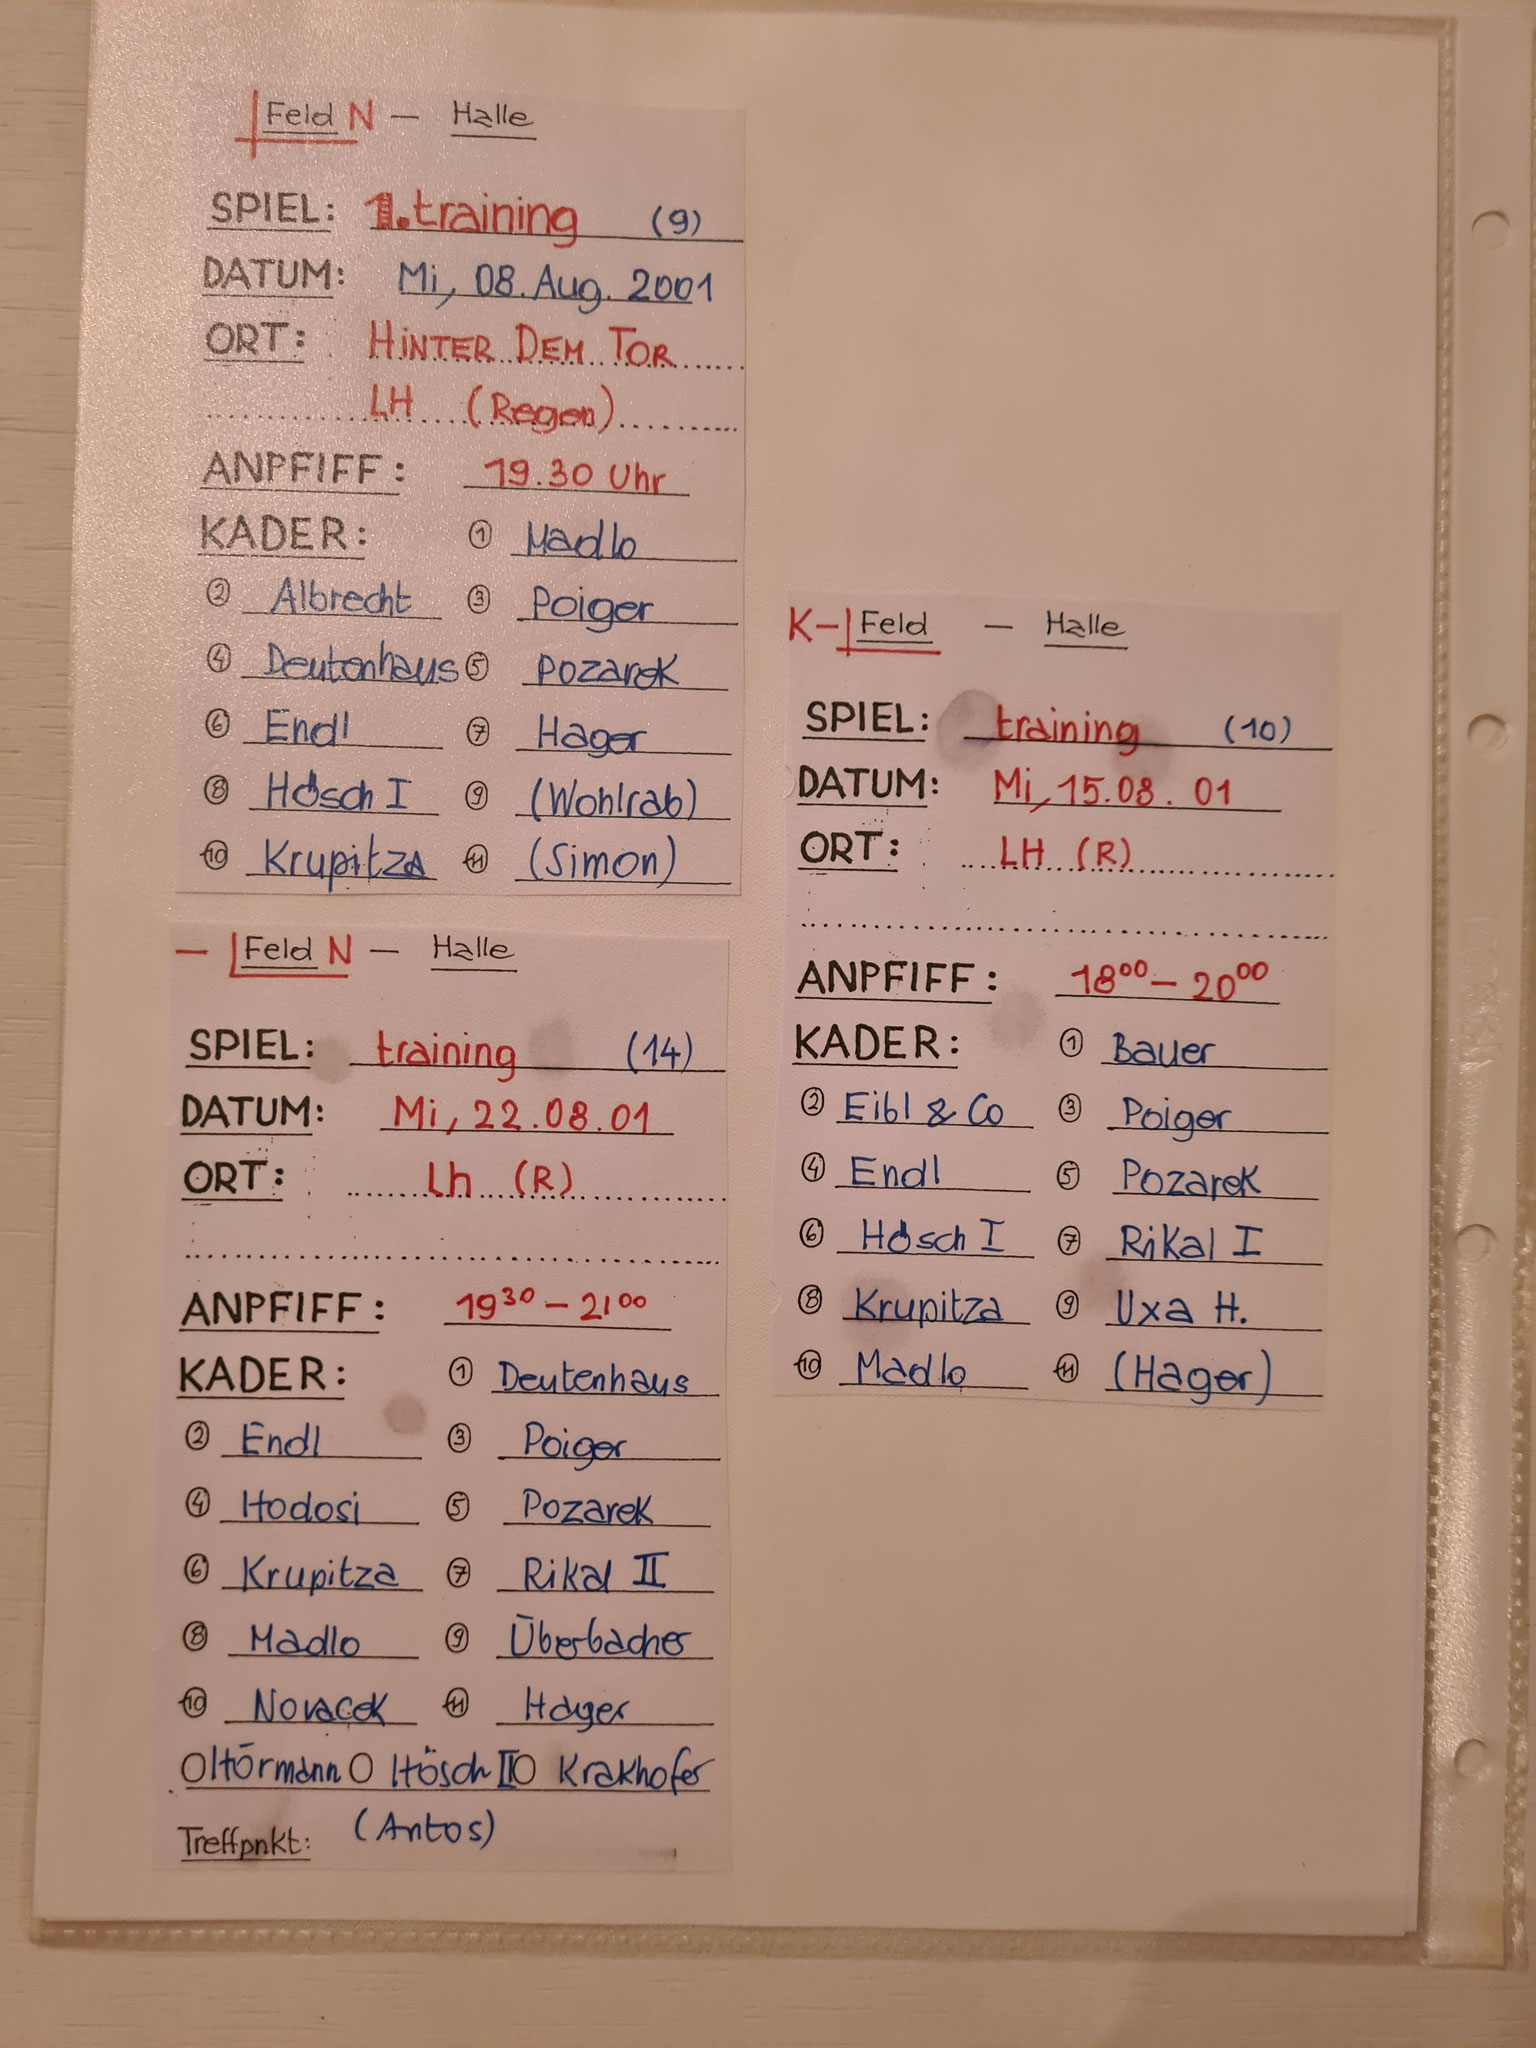 Feld N — Halle
SPIEL: 1. training (9)
DATUM: Mi, 08. Aug. 2001
ORT: HINTER DEM TOR
LH (Regen)
ANPFIFF: 19.30 Uhr
KADER: ① Madlo
② Albrecht ③ Poiger
④ Deutenhaus ⑤ Pozarek
⑥ Endl ⑦ Hager
⑧ Hösch I ⑨ (Wohlrab)
⑩ Krupitza ⑪ (Simon)
— Feld N — Halle
SPIEL: training (14)
DATUM: Mi, 22.08.01
ORT: Lh (R)
ANPFIFF: 19³⁰ – 21⁰⁰
KADER: ① Deutenhaus
② Endl ③ Poiger
④ Hodosi ⑤ Pozarek
⑥ Krupitza ⑦ Rikal II
⑧ Madlo ⑨ Überbacher
⑩ Novacek ⑪ Hager
O Hörmann O Hösch II O Krakhofer
Treffpnkt: (Antos)
K- Feld — Halle
SPIEL: training (10)
DATUM: Mi, 15.08.01
ORT: LH (R)
ANPFIFF: 18⁰⁰ – 20⁰⁰
KADER: ① Bauer
② Eibl & Co ③ Poiger
④ Endl ⑤ Pozarek
⑥ Hösch I ⑦ Rikal I
⑧ Krupitza ⑨ Uxa H.
⑩ Madlo ⑪ (Hager)